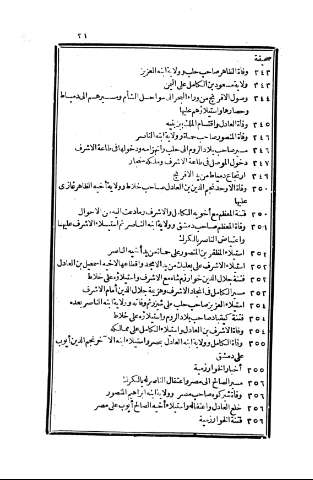 ٢١
صحيفة
٣٤٣ وفاة الظاهر صاحب حلب وولاية ابنه العزيز
٣٤٣ ولاية مسعود بن الكامل على اليمن
٣٤٤ وصول الافرنج من وراء البحر الى سواحل الشأم ومسيرهم الى دمياط
وحصارها واستيلاؤهم عليها
٣٤٥ وفاة العادل واقتسام الملك بين بنيه
٣٤٦ وفاة المنصور صاحب حماة وولاية ابنه الناصر
٣٤٦ مسير صاحب بلاد الروم الى حلب وانهزامه ودخولها في طاعة الاشرف
٣٤٧ دخول الموصل في طاعة الاشرف وملكه سنجار
٣٤٩ ارتجاع دمياط من يد الافرنج
٣٥٠ وفاة الاوحد نجم الدين بن العادل صاحب خلاط وولاية أخيه الظاهر غازى
عليها
٣٥٠ فتنة المعظم مع أخويه الكامل والاشرف وما دعت اليه من الاحوال
٣٥١ وفاة المعظم صاحب دمشق وولاية ابنه الناصر ثم استيلاء الاشرف عليها
واعتياض الناصر بالكرك
٣٥١ استيلاء المظفر بن المنصور على حماة من يد أخيه الناصر
٣٥١ استيلاء الاشرف على بعلبك من يد الامجد واقطاعها لاخيه اسمعيل بن العادل
٣٥٢ فتنة جلال الدين خوارزم شاه مع الاشرف واستيلاؤه على خلاط
٣٥٢ مسير الكامل في انجاد الاشرف وهزيمة جلال الدين أمام الاشرف
٣٥٣ استيلاء العزيز صاحب حلب على شيزر ثم وفاته وولاية ابنه الناصر بعده
٣٥٤ فتنة كيقباد صاحب بلاد الروم واستيلاؤه على خلاط
٣٥٤ وفاة الاشرف بن العادل واستيلاء الكامل على ممالكه
٣٥٥ وفاة الكامل وولاية ابنه العادل بمصر واستيلاء ابنه الآخر نجم الدين أيوب
على دمشق
٣٥٥ أخبار الخوارزمية
٣٥٦ مسير الصالح الى مصر واعتقال الناصر له بالكرك
٣٥٦ وفاة شيركوه صاحب حمص وولاية ابنه ابراهيم المنصور
٣٥٦ خلع العادل واعتقاله واستيلاء أخيه الصالح أيوب على مصر
٣٥٦ فتنة الخوارزمية